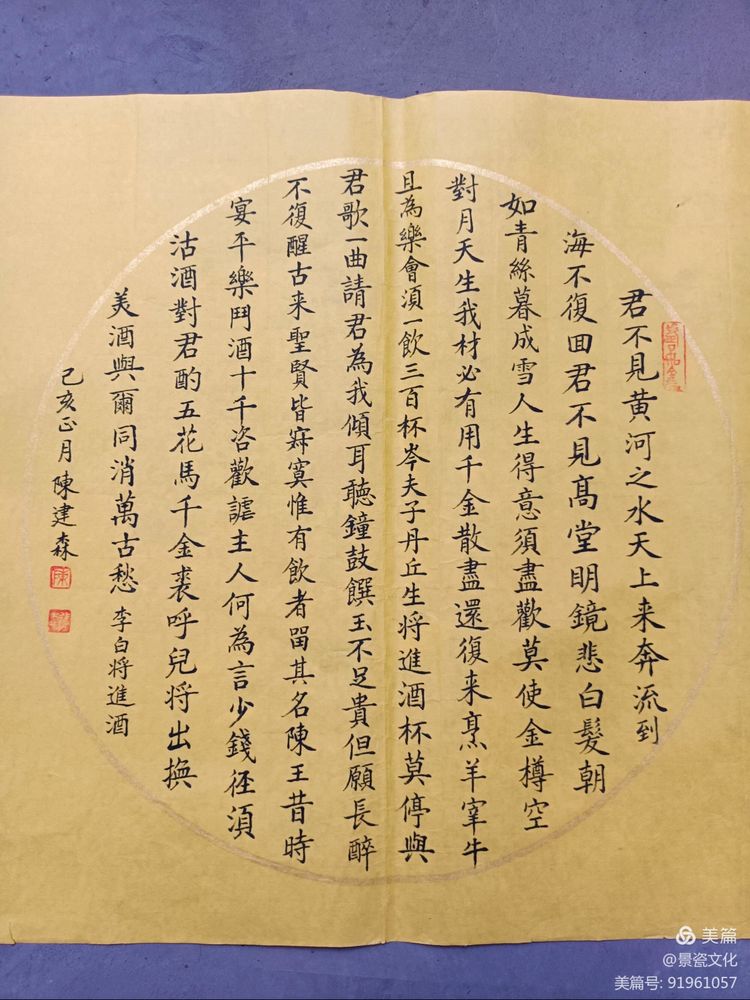 君不見黄河之水天上来奔流到
海不復回君不見髙堂明鏡悲白髮朝
如青絲暮成雪人生得意須盡歡莫使金樽空
對月天生我材必有用千金散盡還復来烹羊宰牛
且為樂會須一飲三百杯岑夫子丹丘生将進酒杯莫停與
君歌一曲請君為我傾耳聽鐘鼓饌玉不足貴但願長醉
不復醒古来聖賢皆寂寞惟有飲者留其名陳王昔時
宴平樂鬥酒十千恣歡謔主人何為言少錢徑須
沽酒對君酌五花馬千金裘呼兒将出換
美酒與爾同消萬古愁 李白将進酒
己亥正月陳建森
美篇
@景瓷文化
美篇号: 91961057